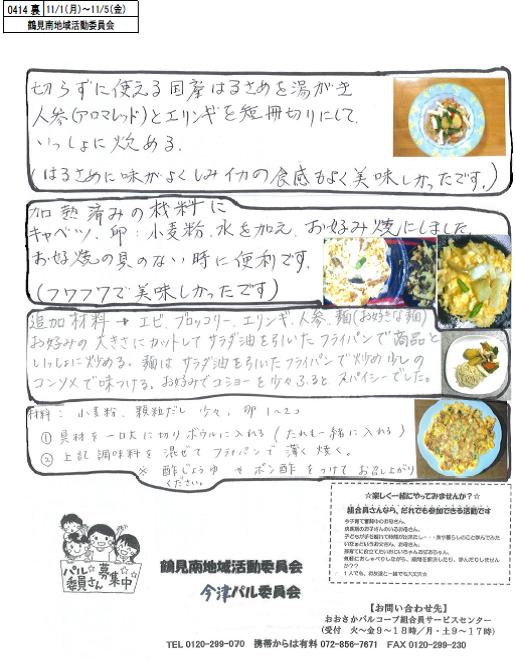 0414 裏 11/1(月)～11/5(金)
鶴見南地域活動委員会
切らずに使える国産はるさめを湯がき
人参(アロマレッド)とエリンギを短冊切りにして、
いっしょに炒める。
(はるさめに味がよくしみイカの食感もよく美味しかったです。)
加熱済みの材料に
キャベツ、卵、小麦粉、水を加え、お好み焼にしました。
お好焼の具のない時に便利です。
(フワフワで美味しかったです)
追加材料→エビ、ブロッコリー、エリンギ、人参、麺(お好きな麺)
お好みの大きさにカットしてサラダ油を引いたフライパンで商品と
いっしょに炒める。麺はサラダ油を引いたフライパンで炒め少しの
コンソメで味つける。お好みでコショーを少々ふるとスパイシーでした。
材料: 小麦粉、顆粒だし 少々、卵 1~2コ
① 具材を一口大に切りボウルに入れる(たれも一緒に入れる)
② 上記調味料を混ぜてフライパンで薄く焼く。
※ 酢じょうゆ やポン酢をつけてお召し上がり
ください。
☆楽しく一緒にやってみませんか?☆
組合員さんなら、だれでも参加できる活動です
1人でも、お友達と一緒でも大丈夫☆
パル☆募
委員さん集中
鶴見南地域活動委員会
今津パル委員会
【お問い合わせ先】
おおさかパルコープ組合員サービスセンター
(受付 火～金9～18時/月・土9～17時)
TEL 0120-299-070 携帯からは有料 072-856-7671 FAX 0120-299-230